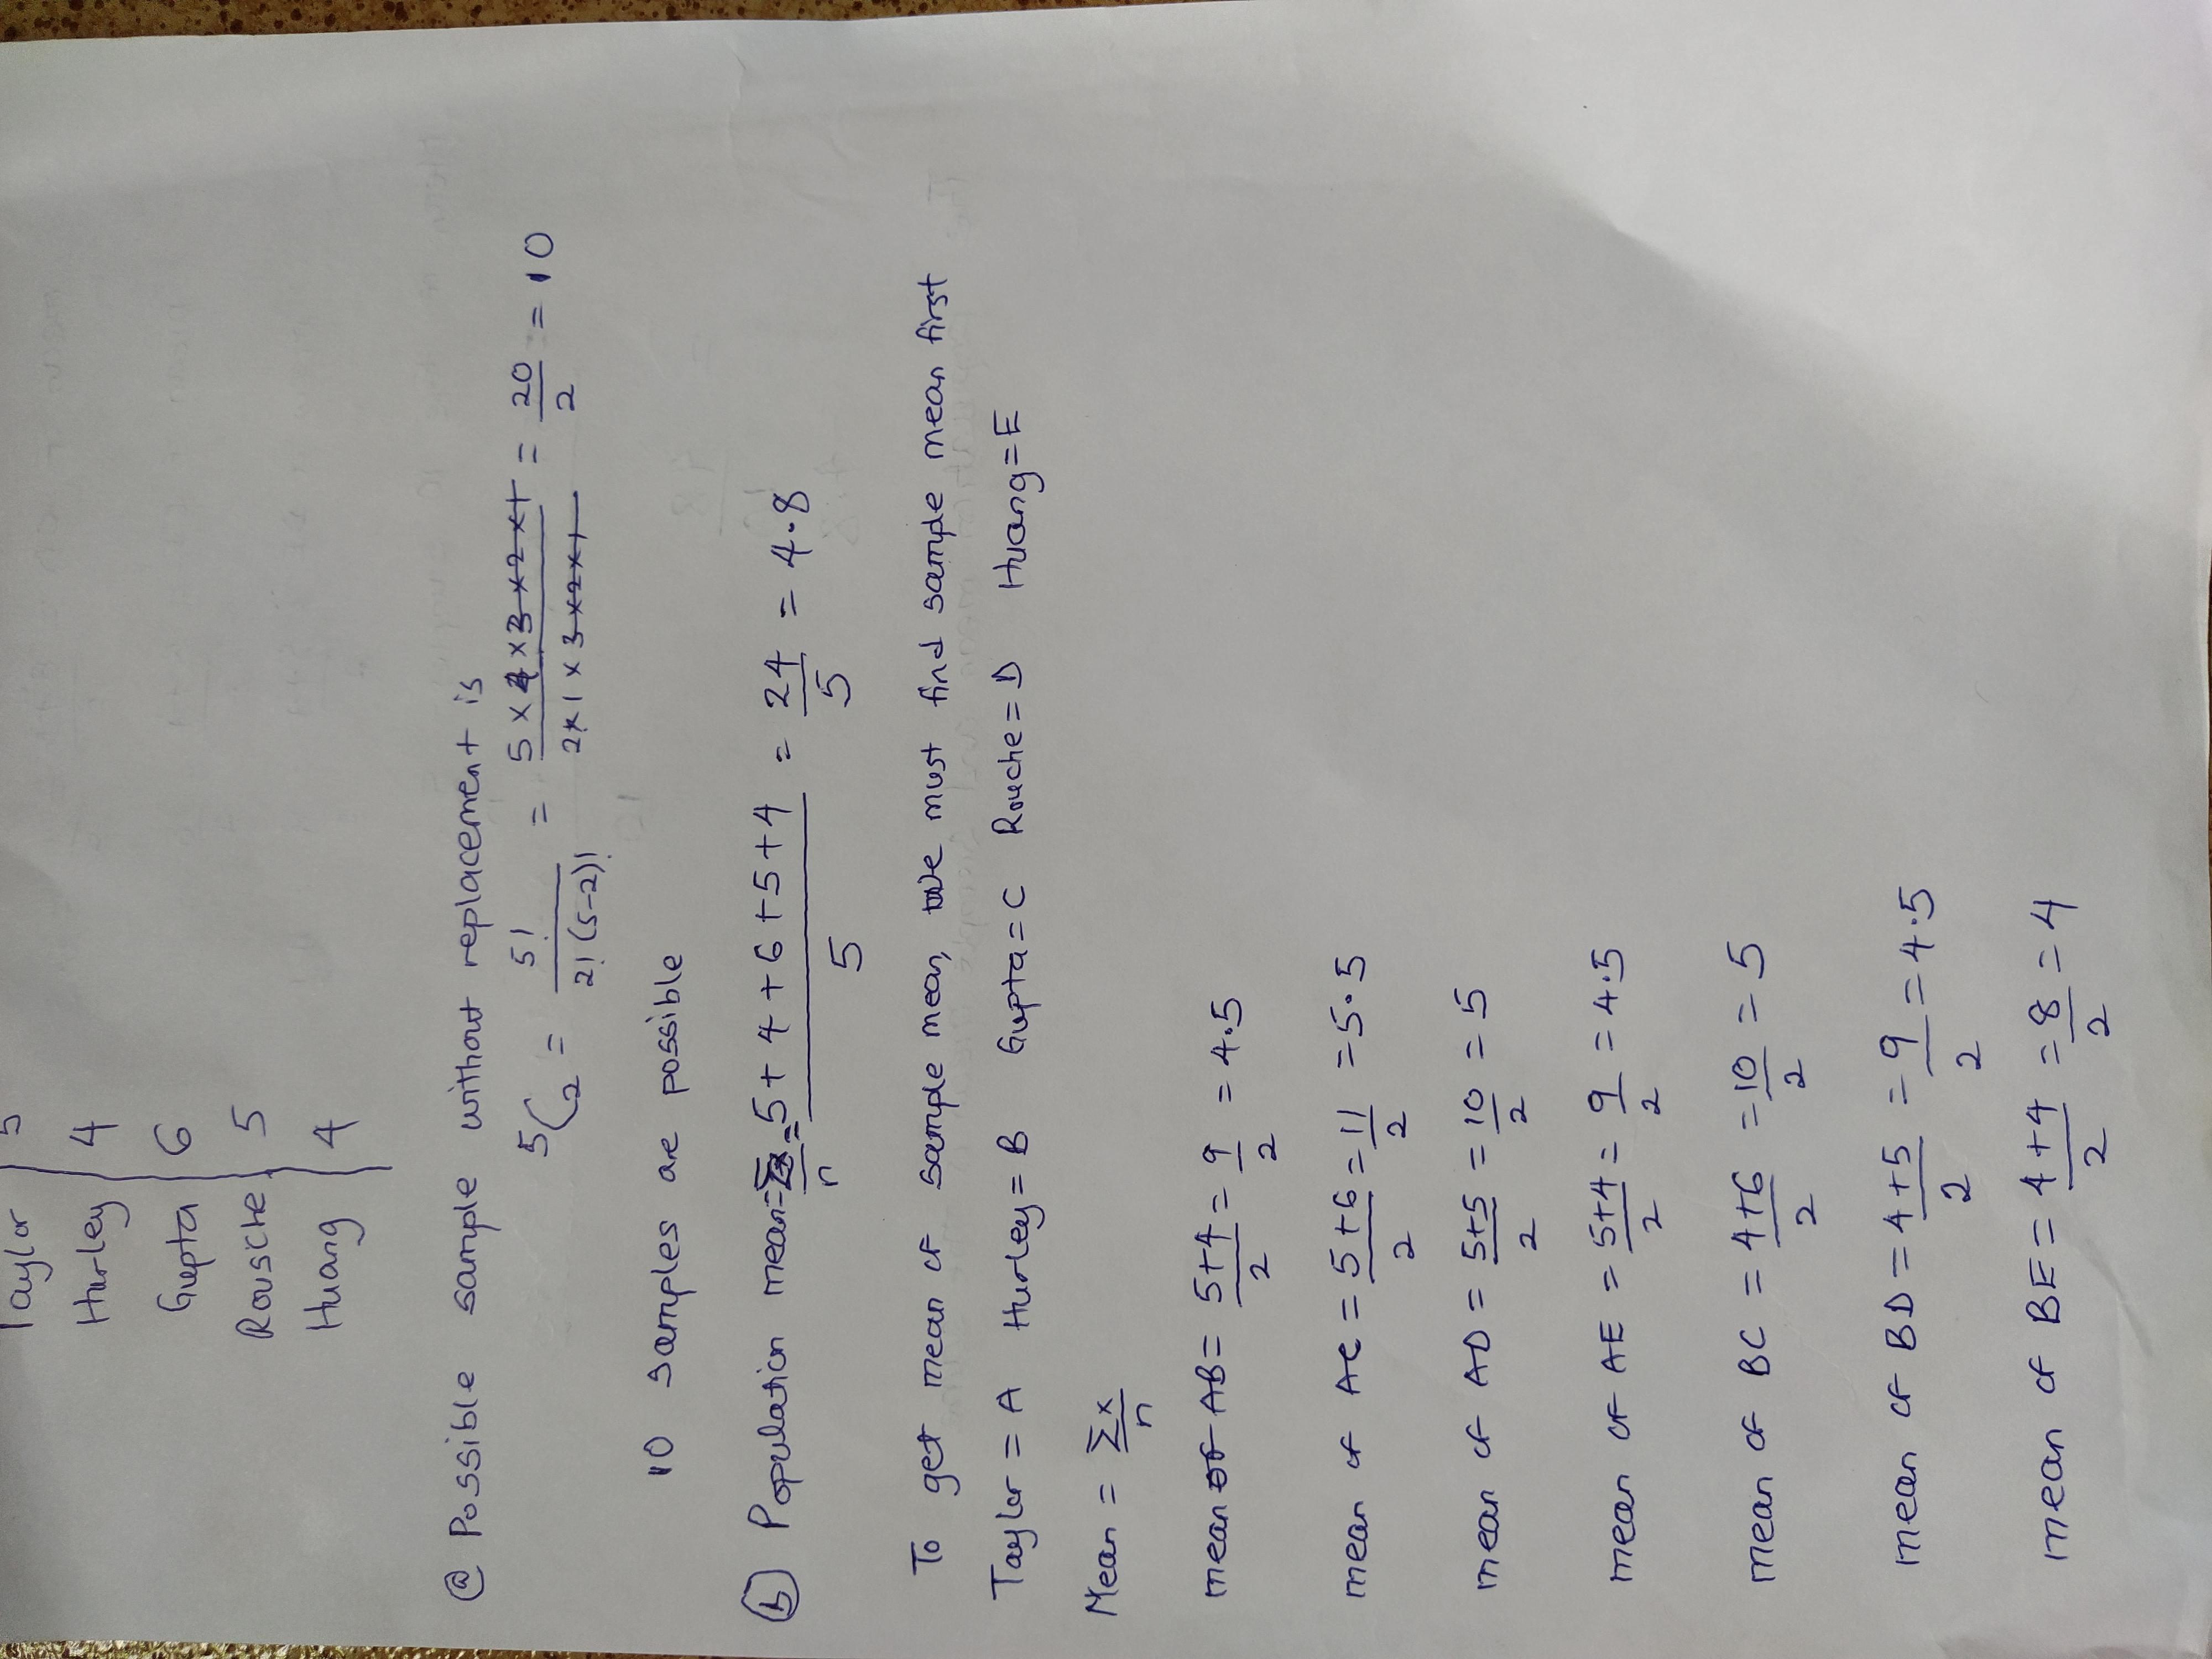 Taylor 5
Hurley 4
Gupta 6
Rousche 5
Huang 4
(a) Possible sample without replacement is
5C2 = 5!/2!(5-2)! = 5×4×3×2×1/2×1×3×2×1 = 20/2 = 10
10 samples are possible
(b) Population mean = Σx/n = 5+4+6+5+4/5 = 24/5 = 4.8
To get mean of sample mean, we must find sample mean first
Taylor = A Hurley = B Gupta = C Rouche = D Huang = E
Mean = Σx/n
mean of AB = 5+4/2 = 9/2 = 4.5
mean of AC = 5+6/2 = 11/2 = 5.5
mean of AD = 5+5/2 = 10/2 = 5
mean of AE = 5+4/2 = 9/2 = 4.5
mean of BC = 4+6/2 = 10/2 = 5
mean of BD = 4+5/2 = 9/2 = 4.5
mean of BE = 4+4/2 = 8/2 = 4